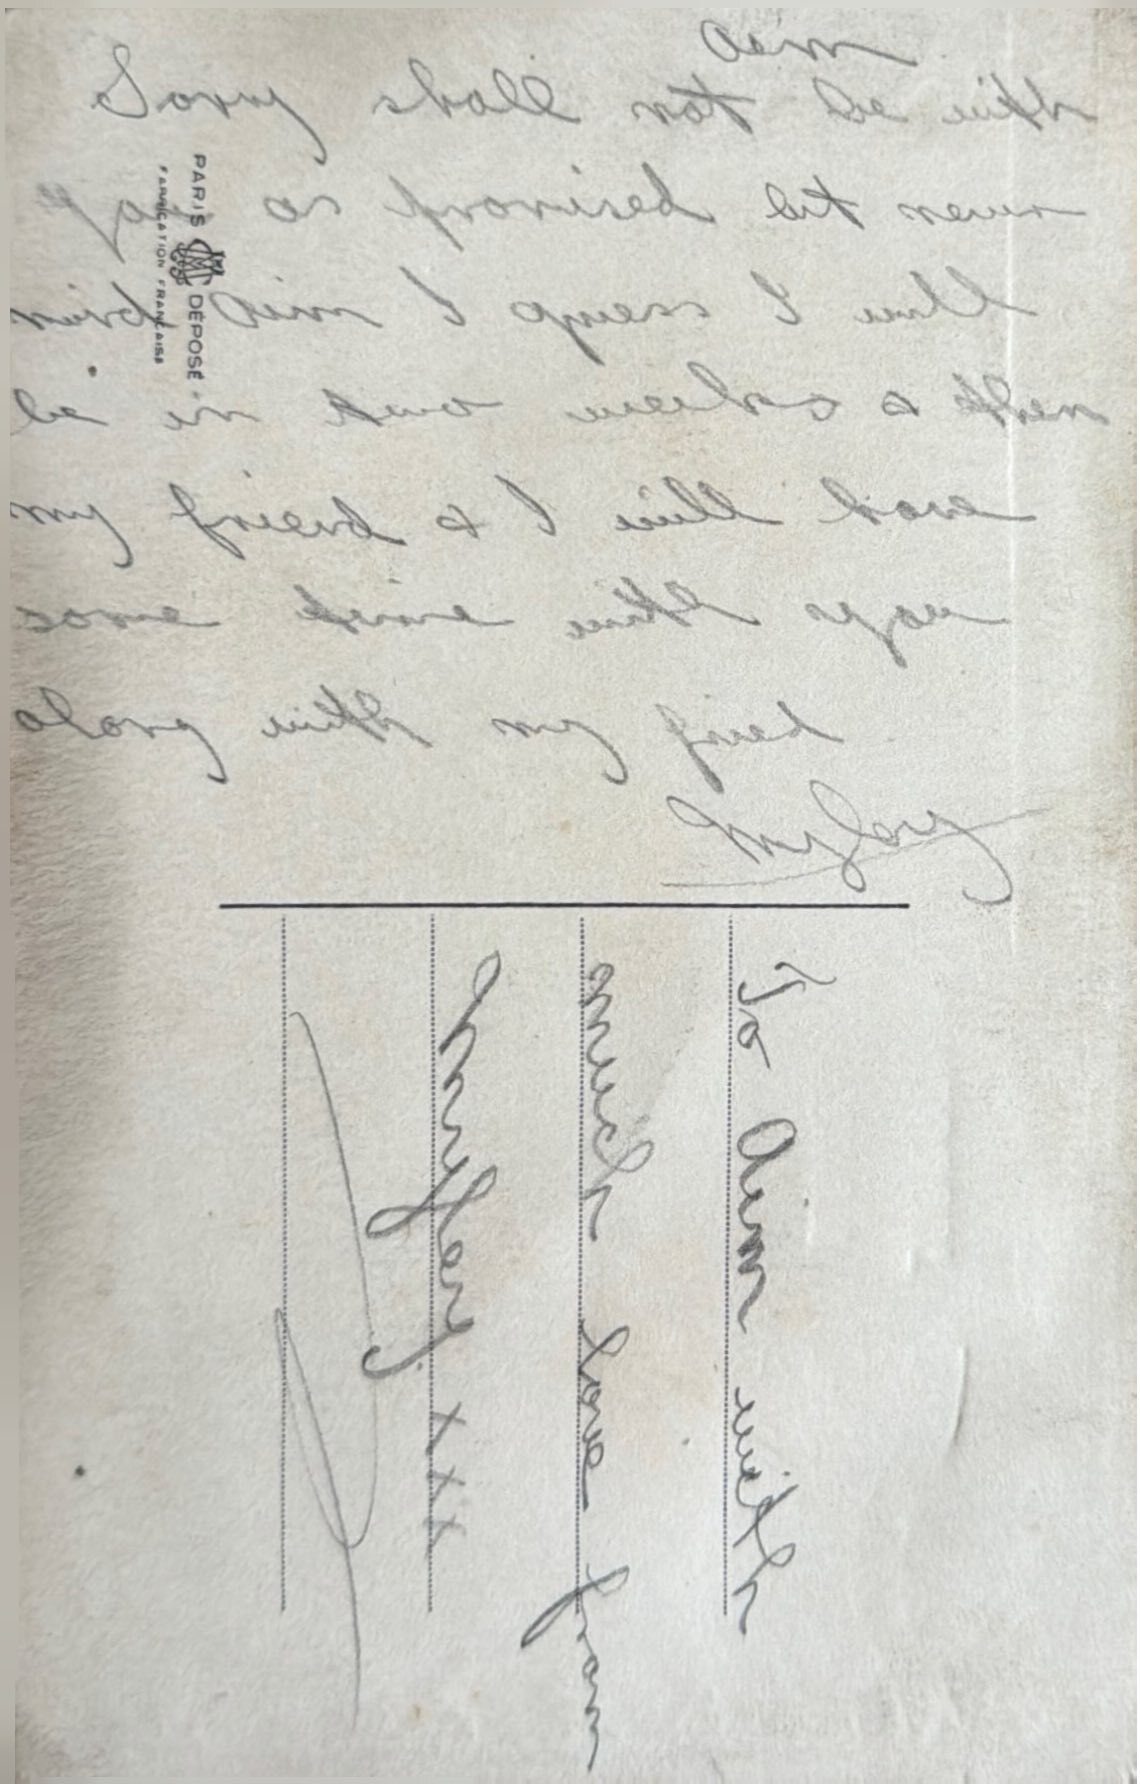 Aim
Sory shall not be with
you as promised but never
mind Aim I guess I will
be in two weeks & then
my friend & I will have
some time with you
along with my fried
PARIS DÉPOSÉ
FABRICATION FRANÇAISE
To Aim with
much love from
xxx